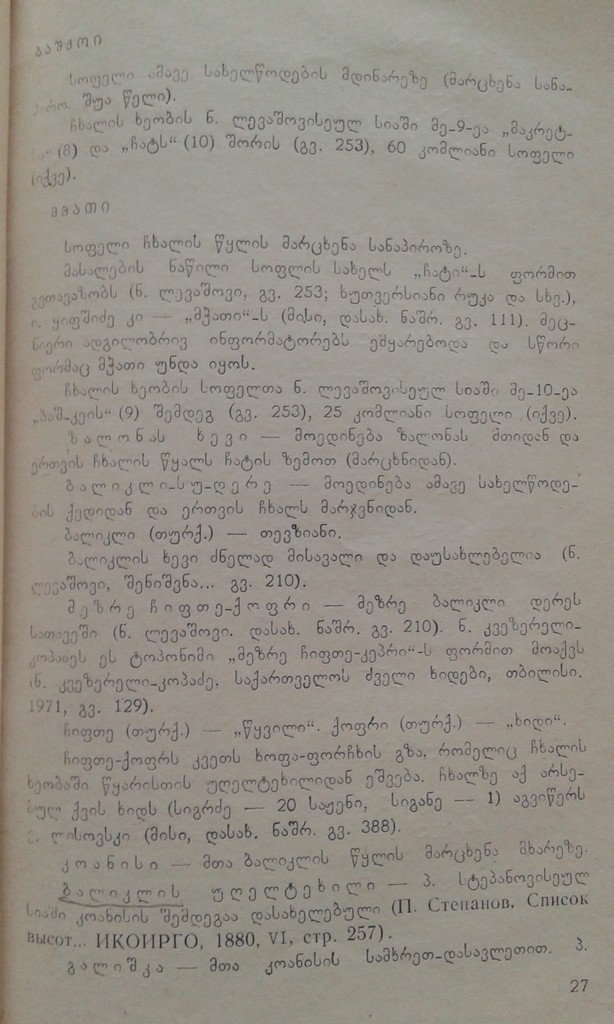 ბაშქოი
სოფელი ამავე სახელწოდების მდინარეზე (მარცხენა სანა-
პირო, შუა წელი).
ჩხალის ხეობის ნ. ლევაშოვისეულ სიაში მე-9-ეა „მაკრეტ-
(8) და „ჩატს“ (10) შორის (გვ. 253), 60 კომლიანი სოფელი
(იქვე).
მჭათი
სოფელი ჩხალის წყლის მარცხენა სანაპიროზე.
მასალების ნაწილი სოფლის სახელს „ჩატი“-ს ფორმით
გვთავაზობს (ნ. ლევაშოვი, გვ. 253; ხუთვერსიანი რუკა და სხე.),
ი. ყიფშიძე კი — „მჭათი“-ს (მისი, დასახ. ნაშრ. გვ. 111). მეც-
ნიერი ადგილობრივ ინფორმატორებს ემყარებოდა და სწორი
ფორმაც მჭათი უნდა იყოს.
ჩხალის ხეობის სოფელთა ნ. ლევაშოვისეულ სიაში მე-10-ეა
„ბაშ-კეის“ (9) შემდეგ (გვ. 253), 25 კომლიანი სოფელი (იქვე).
ზალონას ხევი — მოედინება ზალონას მთიდან და
ერთვის ჩხალის წყალს ჩატის ზემოთ (მარცხნიდან).
ბალიკლი-სუ-დერე — მოედინება ამავე სახელწოდე-
ბის ქედიდან და ერთვის ჩხალს მარჯვნიდან.
ბალიკლი (თურქ.) — თევზიანი.
ბალიკლის ხევი ძნელად მისავალი და დაუსახლებელია (ნ.
ლევაშოვი, შენიშვნა... გვ. 210).
მეზრე ჩიფთე-ქოფრი — მეზრე ბალიკლი დერეს
სათავეში (ნ. ლევაშოვი. დასახ. ნაშრ. გვ. 210). ნ. კვეზერელი-
კოპაძეს ეს ტოპონიმი „მეზრე ჩიფთე-კეპრი“-ს ფორმით მოაქვს
(ნ. კვეზერელი-კოპაძე, საქართველოს ძველი ხიდები, თბილისი.
1971, გვ. 129).
ჩიფთე (თურქ.) — „წყვილი“. ქოფრი (თურქ.) — „ხიდი“.
ჩიფთე-ქოფრს კვეთს ხოფა-ფორჩხის გზა, რომელიც ჩხალის
ხეობაში წყარისთის უღელტეხილიდან ეშვება. ჩხალზე აქ არსე-
ბულ ქვის ხიდს (სიგრძე — 20 საჟენი, სიგანე — 1) აგვიწერს
ლისოვსკი (მისი, დასახ. ნაშრ. გვ. 388).
კოანისი — მთა ბალიკლის წყლის მარცხენა მხარეზე.
ბალიკლის უღელტეხილი — პ. სტეპანოვისეულ
სიაში კოანისის შემდეგაა დასახელებული (П. Степанов. Список
высот... ИКОИРГО, 1880, VI, стр. 257).
გალიშკა — მთა კოანისის სამხრეთ-დასავლეთით. პ.
27